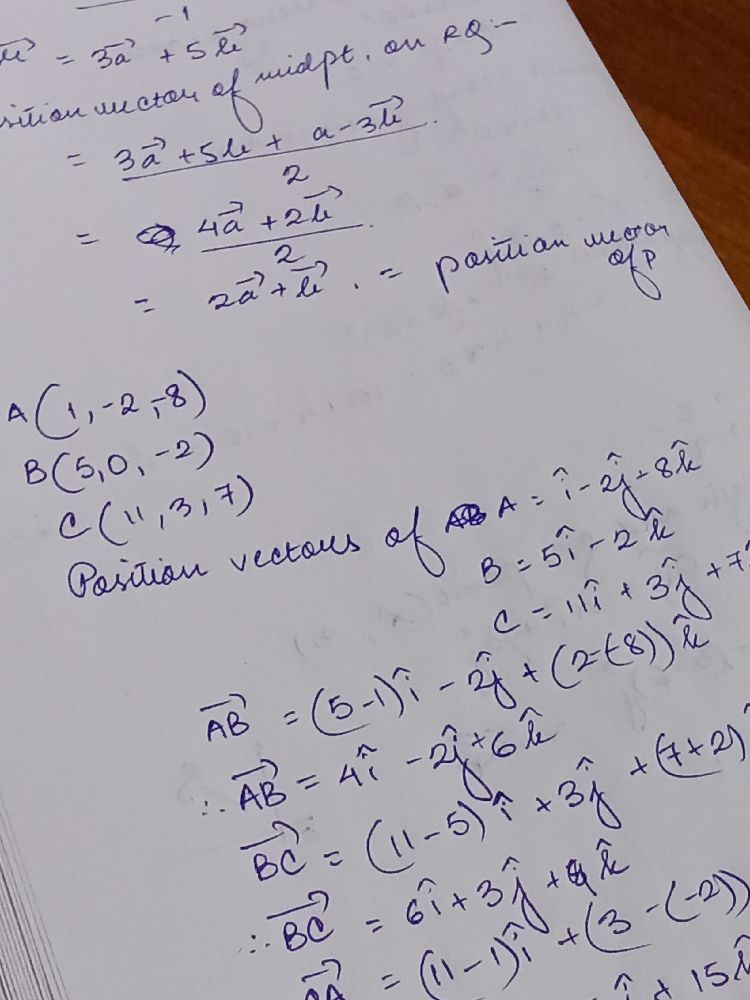 -1
= 3a⃗ + 5b⃗
position vector of midpt. on RQ:-
= 3a⃗ + 5b + a - 3b⃗ / 2
= 4a⃗ + 2b⃗ / 2
= 2a⃗ + b⃗ . = position vector of P
A(1, -2, -8)
B(5, 0, -2)
C(11, 3, 7)
Position vectors of A = î - 2ĵ - 8k̂
B = 5î - 2k̂
C = 11î + 3ĵ + 7
AB⃗ = (5-1)î - 2ĵ + (2-(-8))k̂
∴ AB⃗ = 4î - 2ĵ + 6k̂
BC⃗ = (11-5)î + 3ĵ + (7+2)
∴ BC⃗ = 6î + 3ĵ + 9k̂
= (11-1)î + (3-(-2))
î + 15k̂